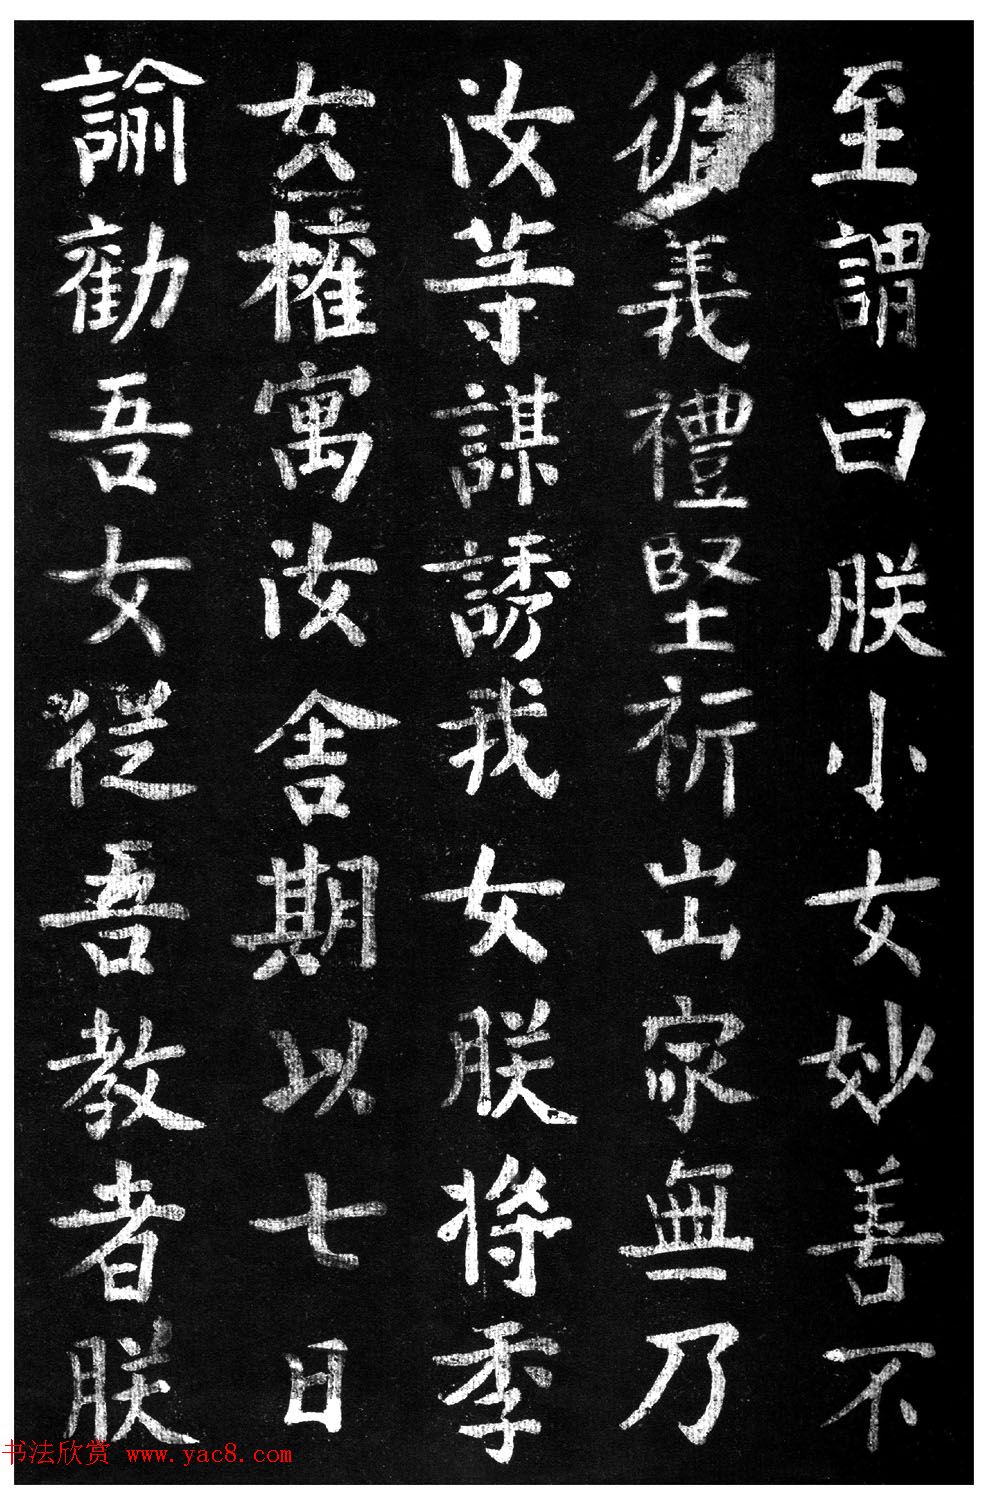 至謂曰朕小女妙善不
循義禮堅祈出家無乃
汝等謀誘我女朕將季
女權寓汝舍期以七日
諭勸吾女從吾教者朕
书法欣赏 www.yac8.com